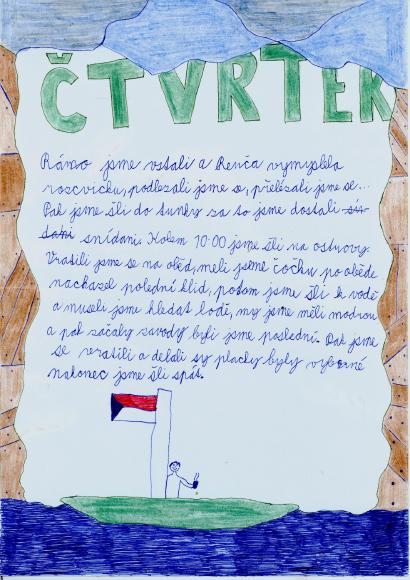 ČTVRTEK
Ráno jsme vstali a Renča vymyslela
rozcvičku, podlezali jsme se, přelézali jsme se...
Pak jsme šli do tunky za to jsme dostali sní-
daní snídani. Kolem 10:00 jsme šli na ostrovy.
Vratili jsme se na oběd, meli jsme čočku po obědě
nacházel polední klid, potom jsme šli k vodě
a museli jsme hledat lodě, my jsme měli modrou
a pak začaly zavody byli jsme poslední. Pak jsme
se vratili a dělali sy placky byly výborné
nakonec jsme šli spát.